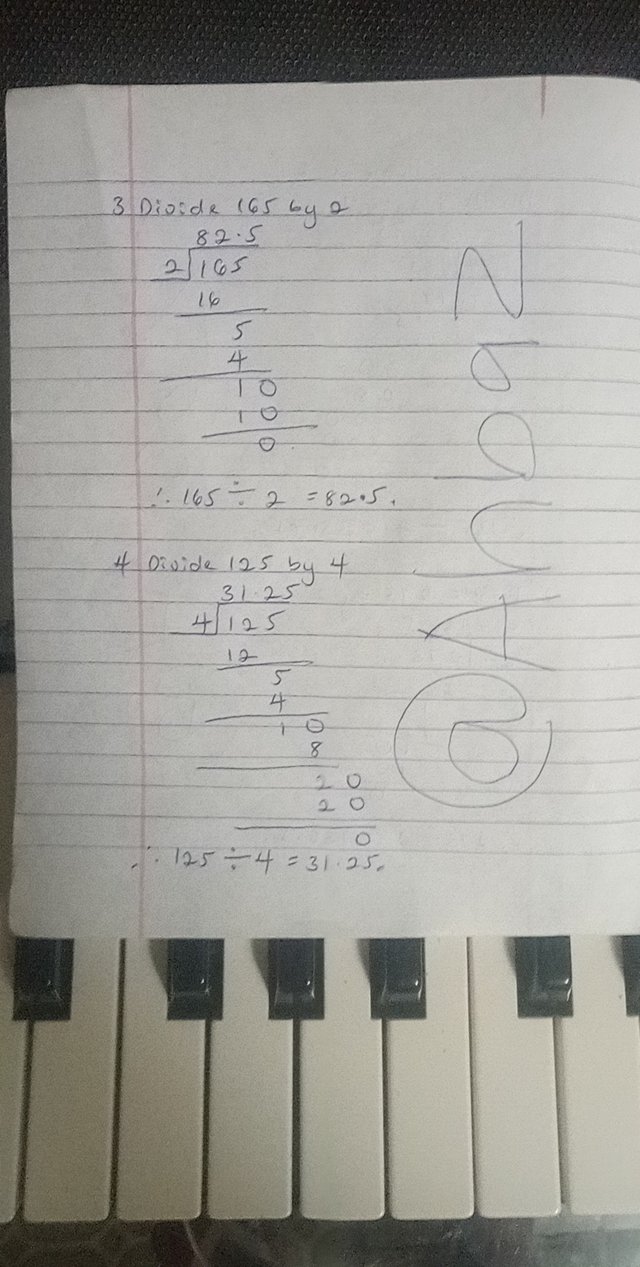 3 Divide 165 by 2
82.5
2 165
16
5
4
10
10
0
∴ 165 ÷ 2 = 82.5.
4 Divide 125 by 4
31.25
4 125
12
5
4
10
8
20
20
0
∴ 125 ÷ 4 = 31.25.